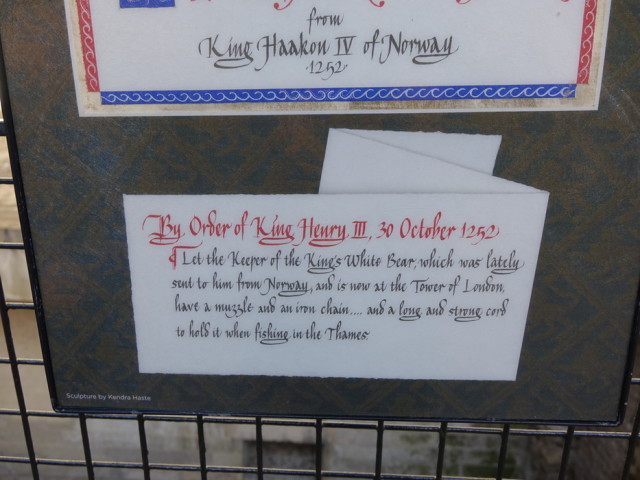 from
King Haakon IV of Norway
1252
By Order of King Henry III, 30 October 1252
¶ Let the Keeper of the King's White Bear, which was lately
sent to him from Norway, and is now at the Tower of London,
have a muzzle and an iron chain.... and a long and strong cord
to hold it when fishing in the Thames.
Sculpture by Kendra Haste